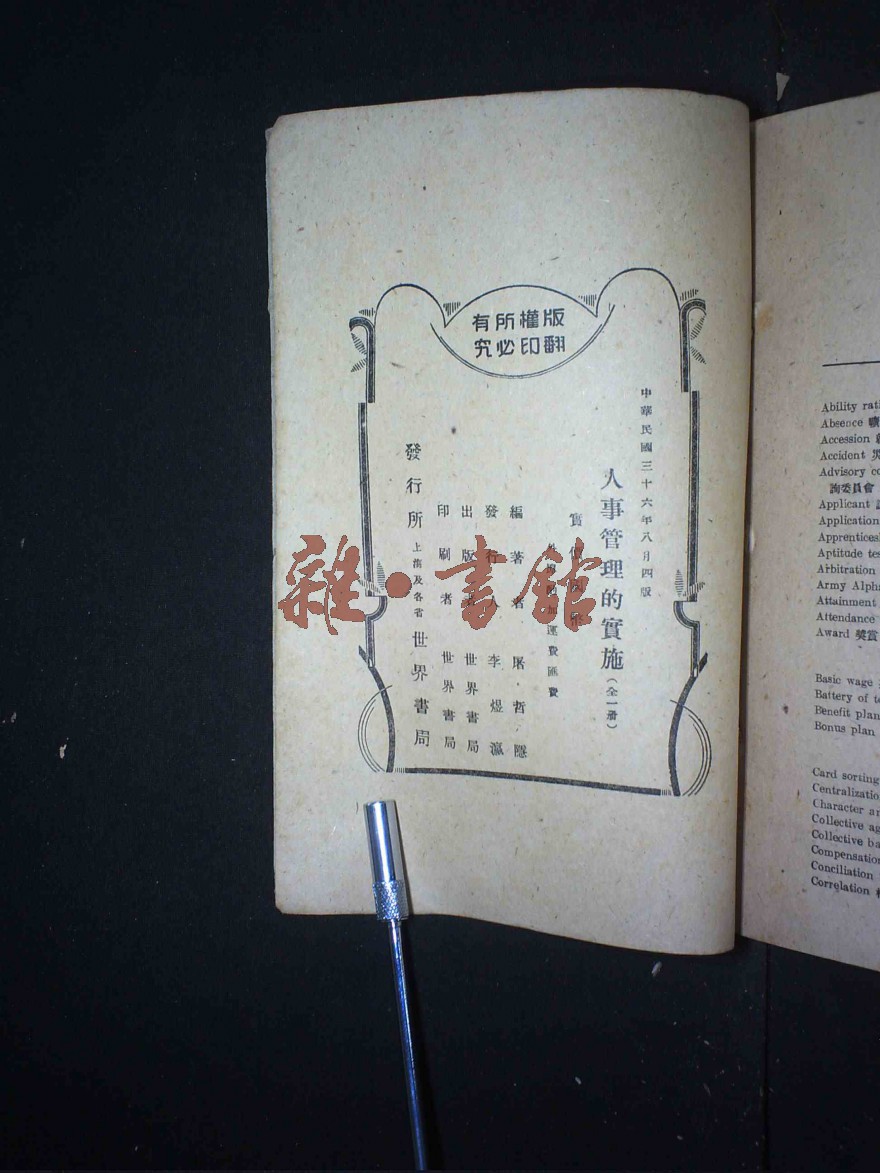 版權所有
翻印必究
中華民國三十六年八月四版
人事管理的實施(全一册)
實價國幣
外埠酌加運費匯費
編著者 屠哲隱
發行人 李煜瀛
出版者 世界書局
印刷者 世界書局
發行所 上海及各省 世界書局
雜·書館
Ability
Absence
Accession
Accident
Advisory
詢委員會
Applicant
Application
Aptitude
Arbitration
Army
Attainment
Attendance
Award 獎賞
Basic wage
Battery of
Benefit plan
Bonus plan
Card sorting
Character
Collective
Collective
Conciliation
Correlation